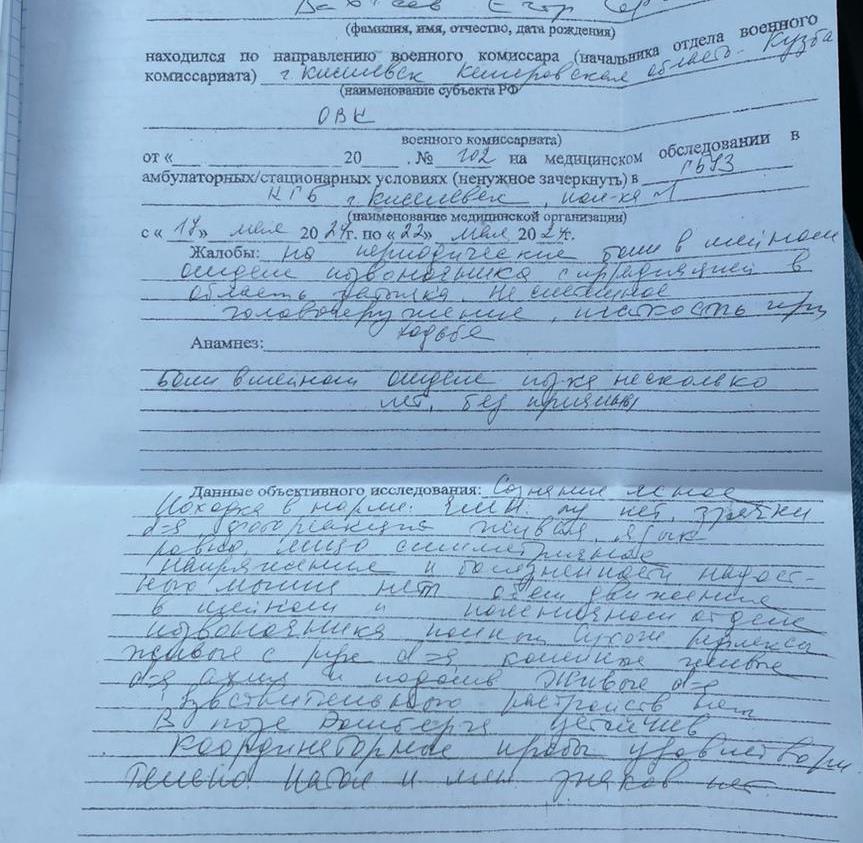 Егор
(фамилия, имя, отчество, дата рождения)
находился по направлению военного комиссара (начальника отдела военного
комиссариата) г. Киселевск Кемеровская область - Кузба
(наименование субъекта РФ
ОВК
военного комиссариата)
от «__ ________ 20____ . № 102 на медицинском обследовании в
амбулаторных/стационарных условиях (ненужное зачеркнуть) в ГБУЗ
КГБ г. Киселевск, пол-ка 1
(наименование медицинской организации)
с « 17» мая 2024г. по «22» мая 2024г.
Жалобы: на периодические боли в шейном
отделе позвоночника с иррадиацией в
область затылка. Не системное
головокружение, шаткость при
ходьбе
Анамнез:
Боли в шейном отделе несколько
лет, без причины
Данные объективного исследования: Сознание ясное
Походка в норме. ЧМН: нет, зрачки
d=s фотореакция живая, язык
ровно, лицо симметричное
напряжения и болезненности
мышц нет объем движения
в шейном и поясничном отделе
позвоночника полный Сухож рефлексы
живые с рук d=s, коленные живые
d=s ахил и подошв живые d=s
чувствительного расстройств нет
В позе Ромберга устойчив
Координаторные пробы удовлетвори
тельно. Патол и мен знаков нет